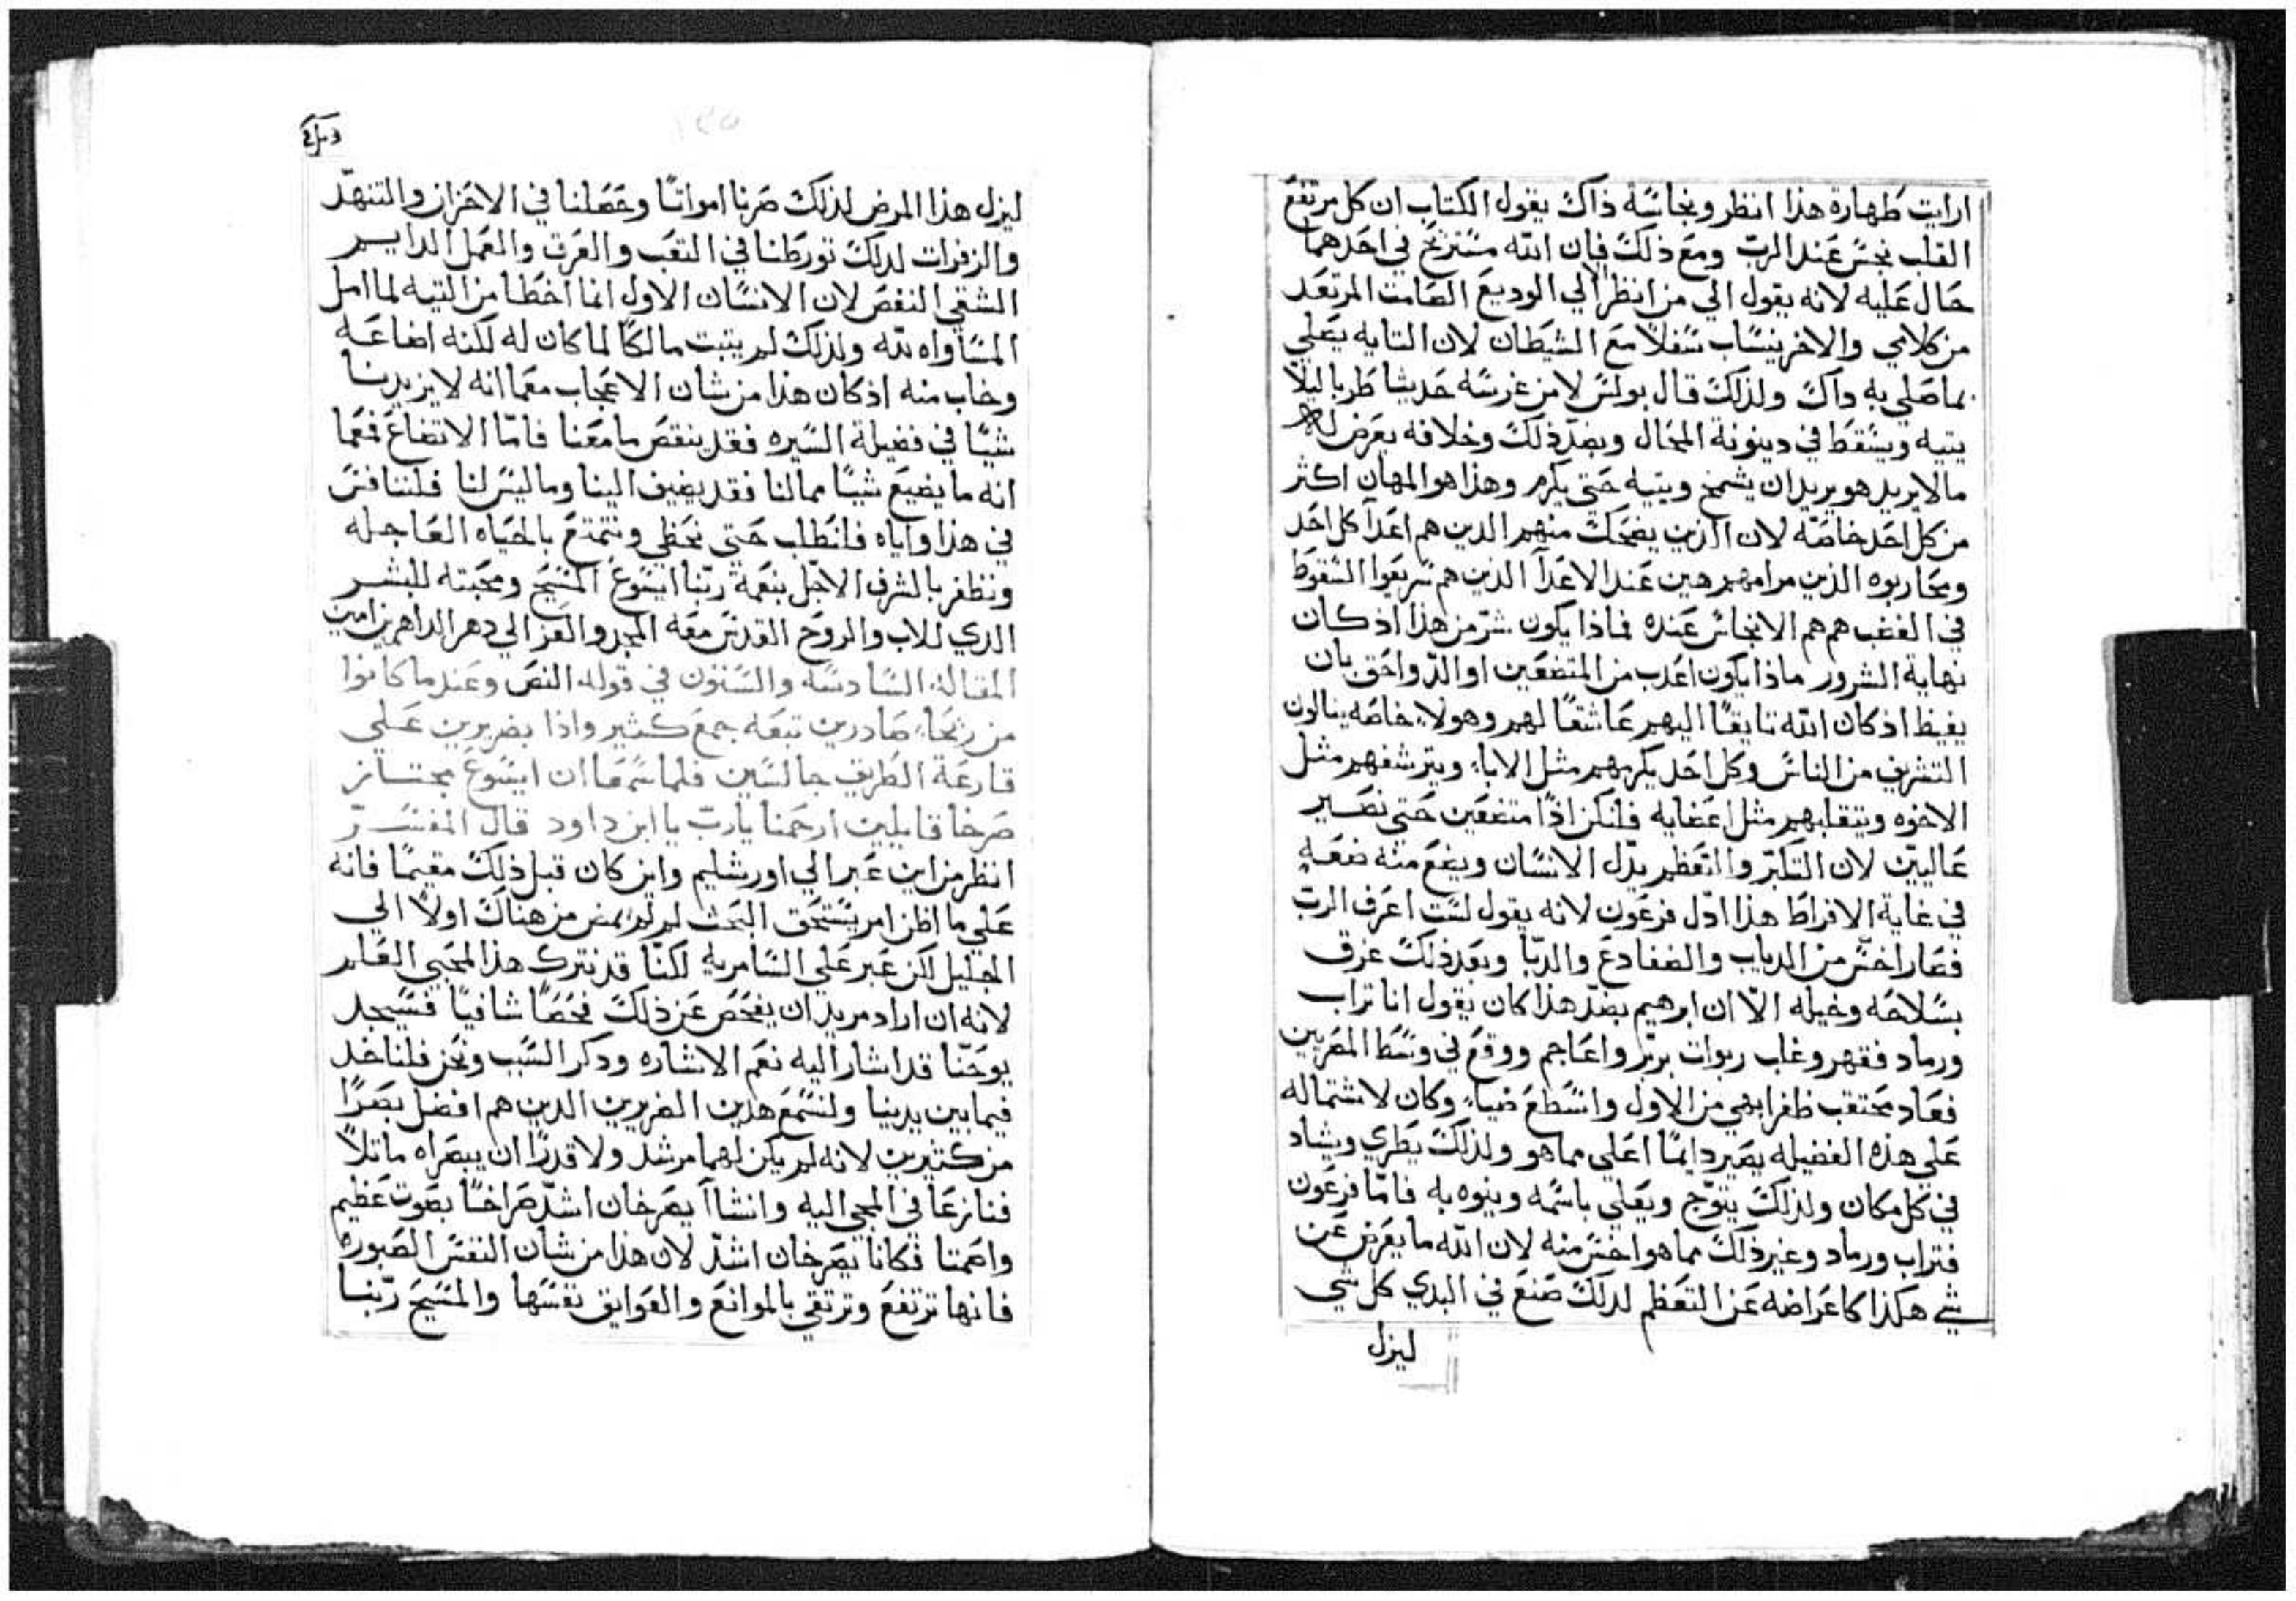 ارايت طهارة هذا انظر ونجاسة ذاك يقول الكتاب ان كل مرتفع
القلب نجس عند الرب ومع ذلك فان الله مستريح في احدهما
حال عليه لانه يقول الي من انظر الا الي الوديع الصامت المرتعد
من كلامي والاخر ينساب سفلا مع الشيطان لان التايه يصلي
بما صلي به داك ولذلك قال بولس لا من غرسه حديثا طريا ليلا
يتيه ويسقط في دينونة المحال وبضد ذلك وخلافه يعرض له
مالا يريد هو يريد ان يشمخ ويتيه حتي يكرم وهذا هو المهان اكثر
من كل احد خاصه لان الذين يضحك منهم الدين هم اعدآ كل احد
ومحاربوه الذين مرامهم هين عند الاعدآ الذين هم سريعوا السقوط
في الغضب هم هم الانجاس عنده فماذا يكون شر من هذا اذ كان
نهاية الشرور ماذا يكون اعدب من المتضعين او الد واحق بان
يغبط اذ كان الله تايقا اليهم عاشقا لهم وهولاء خاصه ينالون
التشريف من الناس وكل احد يكرمهم مثل الاباء ويترشفهم مثل
الاخوه ويتقلبهم مثل اعضايه فلنكن اذا متضعين حتي نصير
عاليين لان التكبر والتعظم يدل الانسان ويضع منه ضعه
في غاية الافراط هذا ادل فرعون لانه يقول لست اعرف الرب
فصار اخس من الدباب والضفادع والدبا وبعد ذلك غرق
بسلاحه وخيله الا ان ابرهيم بضد هذا كان يقول انا تراب
ورماد فقهر وغلب ربوات بربر واعاجم ووقع في وسط المصريين
فعاد محتقب ظفرا ابهي من الاول واسطع ضياء وكان لاشتماله
علي هذه الفضيله يصير دايما اعلي مما هو ولذلك يطري ويشاد
في كل مكان ولذلك يتوج ويعلي باسمه وينوه به فاما فرعون
فتراب ورماد وغير ذلك مما هو اخس منه لان الله ما يعرض عن
شي هكذا كاعراضه عن التعظم لدلك صنع في البدي كل شي
ليزل
ليزل هذا المرض لذلك صرنا امواتا وحصلنا في الاحزان والتنهد
والزفرات لدلك تورطنا في التعب والعرق والعمل الدايم
الشقي النغص لان الانسان الاول انما اخطا من التيه لما امل
المساواه لله ولذلك لم يتبت مالكا لما كان له لكنه اضاعه
وخاب منه اذ كان هذا من شان الاعجاب معما انه لا يزيدنا
شيا في فضيلة السيره فقد ينقص ما معنا فاما الاتضاع فمعما
انه ما يضيع شيا مما لنا فقد يضيف الينا وما ليس لنا فلننافس
في هذا واياه فلنطلب حتي نحظي ونتمتع بالحياه العاجله
ونظفر بالشرف الاجل بنعمة ربنا ايسوع المسيح ومحبته للبشر
الدي للاب والروح القدس معه المجد والعز الي دهر الداهرين امين
المقالة السادسه والستون في قوله النص وعندما كانوا
من ريحا صادرين تبعه جمع كثير واذا بضريرين علي
قارعة الطريق جالسين فلما سمعا ان ايسوع مجتاز
صرخا قايلين ارحمنا يارب يا ابن داود قال المفسر
انظر من اين عبر الي اورشليم واين كان قبل ذلك مقيما فانه
علي ما اظن امر يستحق البحث لم لم يمض من هناك اولا الي
الجليل لكن عبر علي السامريه لكنا قد نترك هذا لمحبي العلم
لانه ان اراد مريد ان يفحص عن ذلك فحصا شافيا فسيجد
يوحنا قد اشار اليه نعم الاشاره ودكر السبب ونحن فلناخد
فيما بين يدينا ولنسمع هدين الضريرين الدين هم افضل بصرا
من كثيرين لانه لم يكن لهما مرشد ولا قدرا ان يبصراه ماثلا
فنازعا في المجي اليه وانشاآ يصرخان اشد صراخا بصوت عظيم
واصمتا فكانا يصرخان اشد لان هذا من شان النفس الصبوره
فانها ترتفع وترتقي بالموانع والعوايق نفسها والمسيح ربنا